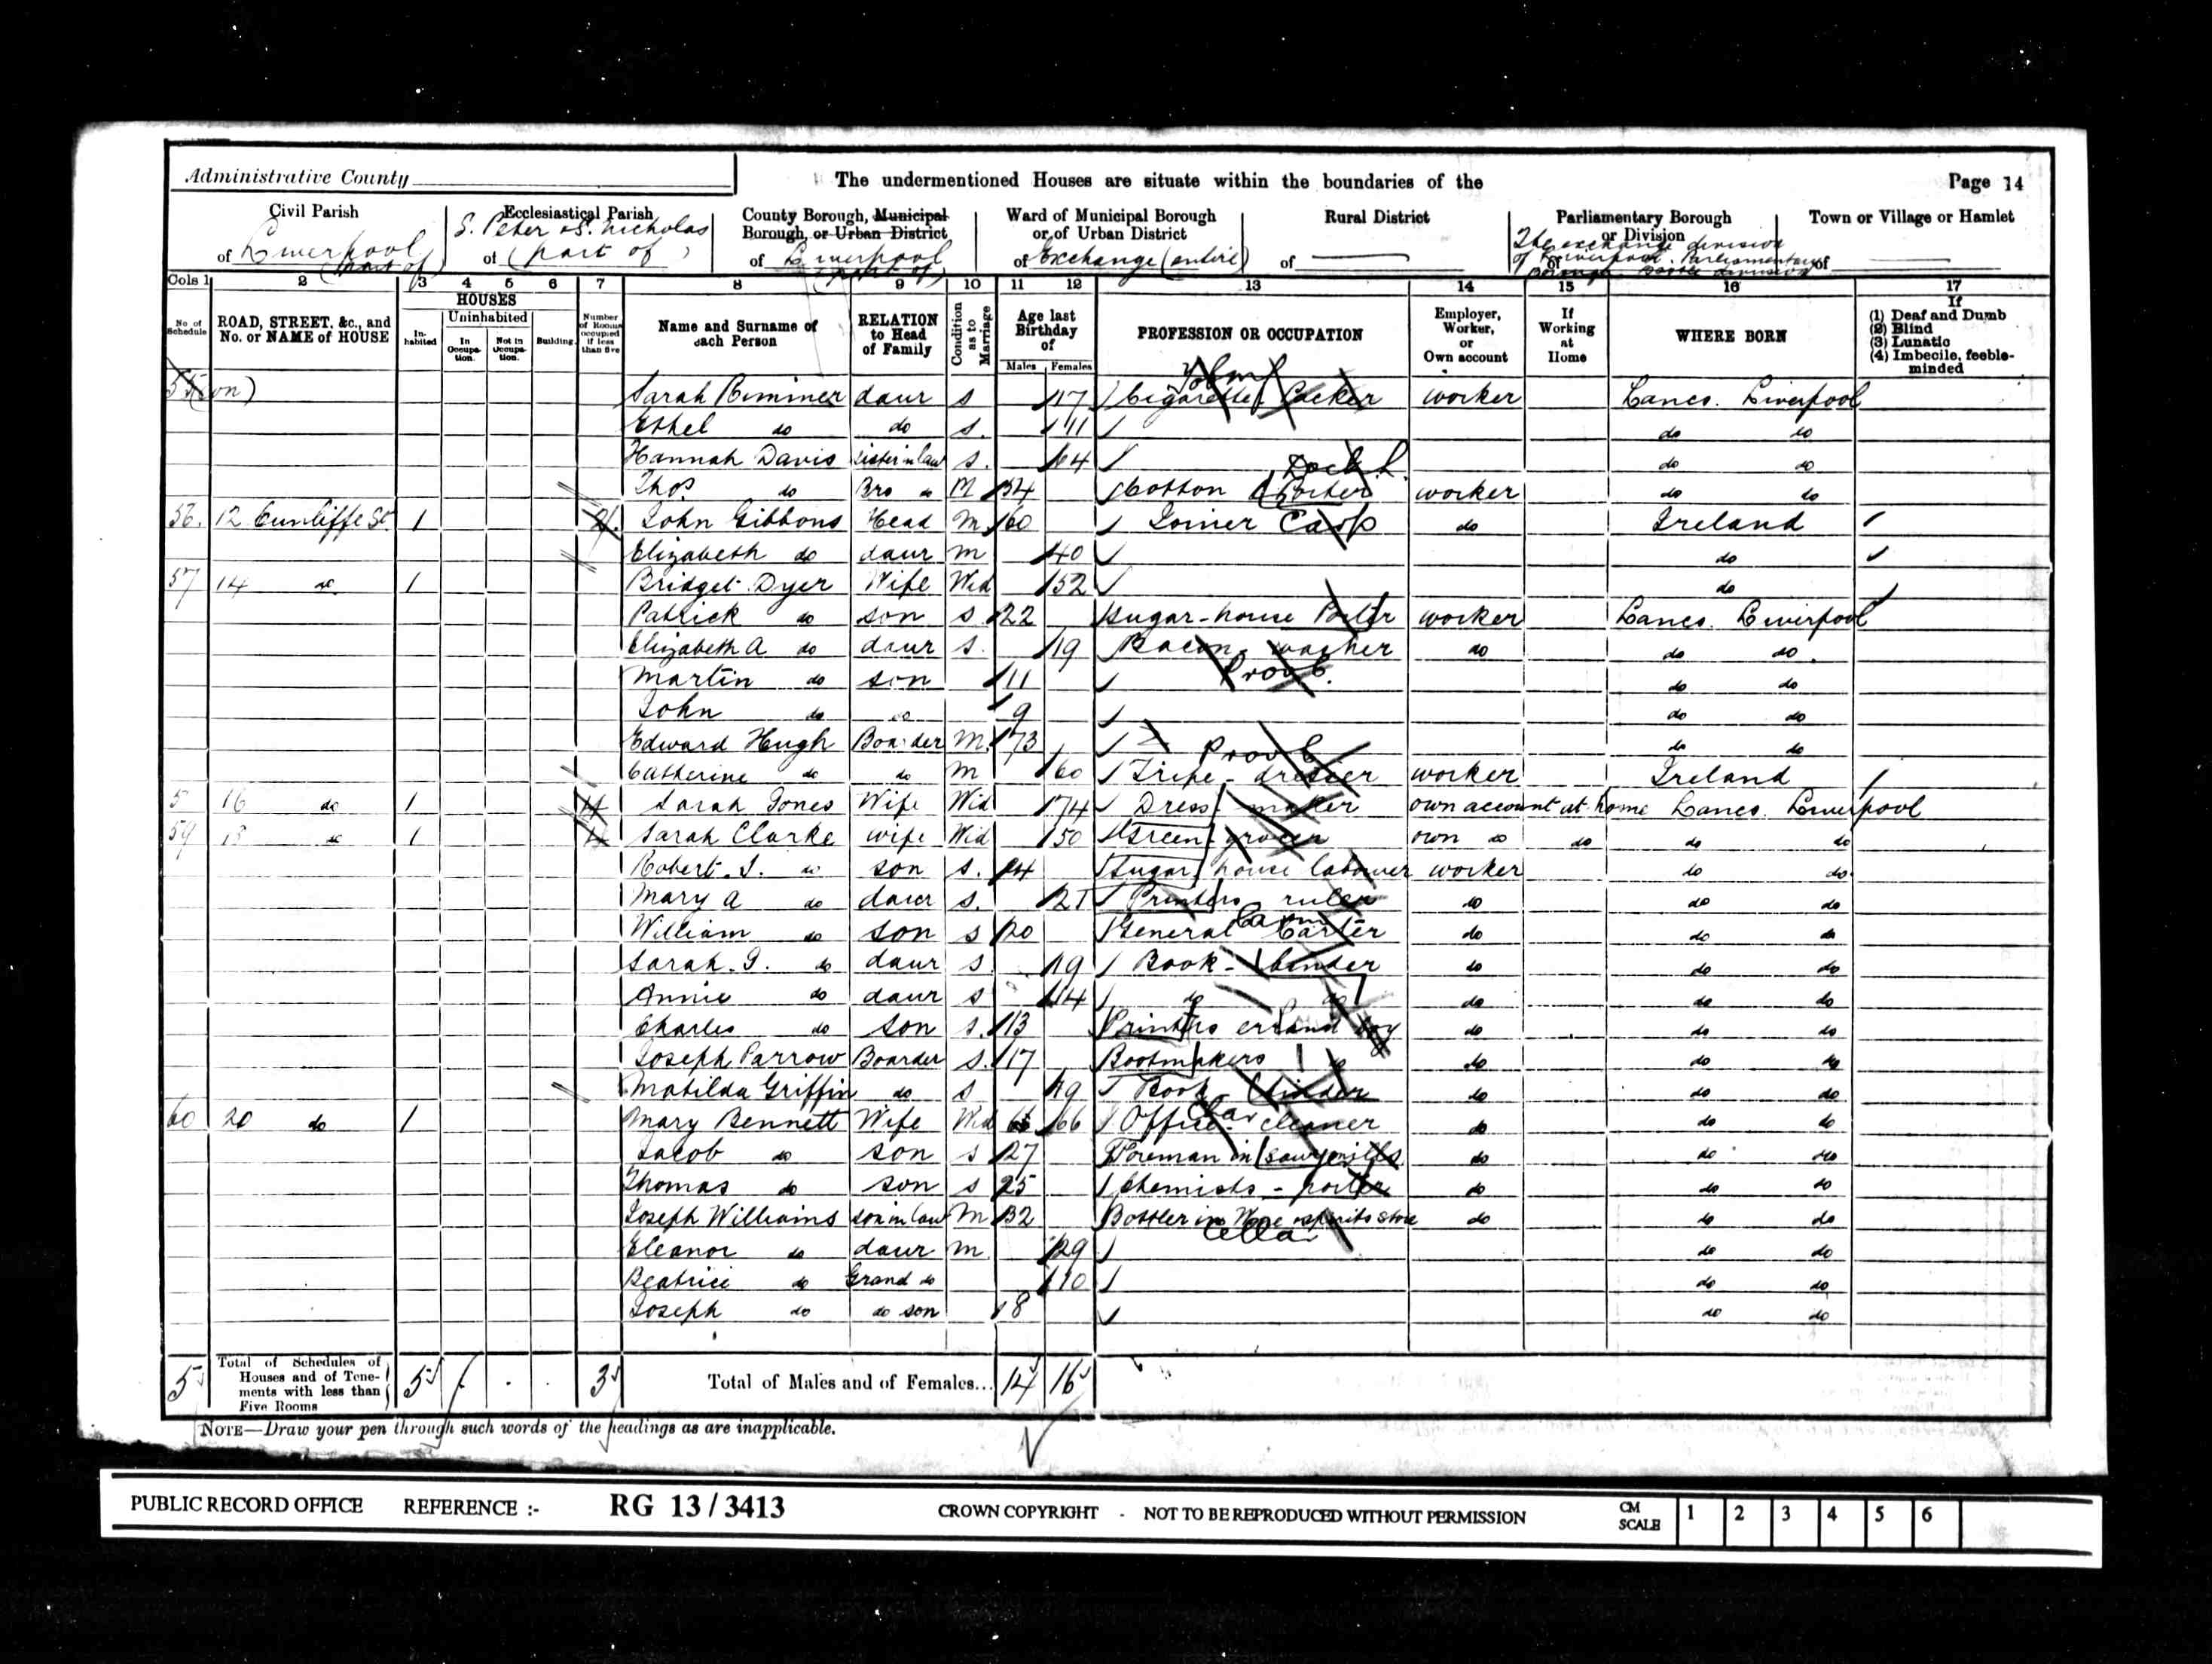 Administrative County
The undermentioned Houses are situate within the boundaries of the
Page 14
Civil Parish
of Liverpool (part of)
Ecclesiastical Parish
S. Peter & S. Nicholas
of (part of)
County Borough, Municipal
Borough, or Urban District
of Liverpool (part of)
Ward of Municipal Borough
or of Urban District
of Exchange (entire)
Rural District
of
Parliamentary Borough
or Division
The exchange division
of Liverpool Parliamentary
Town or Village or Hamlet
of
Cols 1 2 3 4 5 6 7 8 9 10 11 12 13 14 15 16 17
No of Schedule
ROAD, STREET, &c., and No. or NAME of HOUSE
HOUSES
In-habited
Uninhabited
In Occupa-tion.
Not in Occupa-tion.
Building
Number of Rooms occupied if less than five
Name and Surname of each Person
RELATION to Head of Family
Condition as to Marriage
Age last Birthday of
Males Females
PROFESSION OR OCCUPATION
Employer, Worker, or Own account
If Working at Home
WHERE BORN
If
(1) Deaf and Dumb
(2) Blind
(3) Lunatic
(4) Imbecile, feeble-minded
Sarah Rimmer daur S 17 Cigarette Packer worker Lancs. Liverpool
Ethel do do S. 11 do do
Hannah Davis sister in law S. 64 do do
Thos. do Bro do M 34 Cotton Porter worker do do
56. 12 Cunliffe St. 1 2. John Gibbons Head M 60 Joiner Carp do Ireland
Elizabeth do daur M 40 do
57 14 do 1 Bridget Dyer Wife Wid 52 do
Patrick do son S 22 Sugar-house Porter worker Lancs. Liverpool
Elizabeth A do daur S. 19 Bacon-washer do do do
Martin do son 11 do do
John do do 9 do do
Edward Hugh Boarder M. 73 do do
Catherine do do M 60 Tripe-dresser worker Ireland
5 16 do 1 4 Sarah Jones Wife Wid 74 Dress maker own account at home Lancs. Liverpool
59 18 do 1 4 Sarah Clarke wife Wid 50 Green grocer own do do do do
Robert. J. do son S. 24 Sugar house labourer worker do do
Mary A do daur S. 21 Printers ruler do do do
William do son S 20 General Carter do do do
Sarah. J. do daur S 19 Book-binder do do do
Annie do daur S 14 do do do do do
Charles do son S. 13 Printers errand boy do do do
Joseph Parrow Boarder S. 17 Bootmakers do do do do
Matilda Griffin do S 19 Book-binder do do do
60 20 do 1 Mary Bennett Wife Wid 66 Office-cleaner do do do
Jacob do son S 27 Foreman in sawmills do do do
Thomas do son S 25 Chemists-porter do do do
Joseph Williams son in law M 32 Bottler in Wine & spirits store do do do
Eleanor do daur M. 29 do do
Beatrice do Grand do 10 do do
Joseph do do son 8 do do
5 Total of Schedules of Houses and of Tene-ments with less than Five Rooms 5 3 Total of Males and of Females... 14 16
NOTE—Draw your pen through such words of the headings as are inapplicable.
PUBLIC RECORD OFFICE REFERENCE :- RG 13 / 3413 CROWN COPYRIGHT - NOT TO BE REPRODUCED WITHOUT PERMISSION CM SCALE 1 2 3 4 5 6